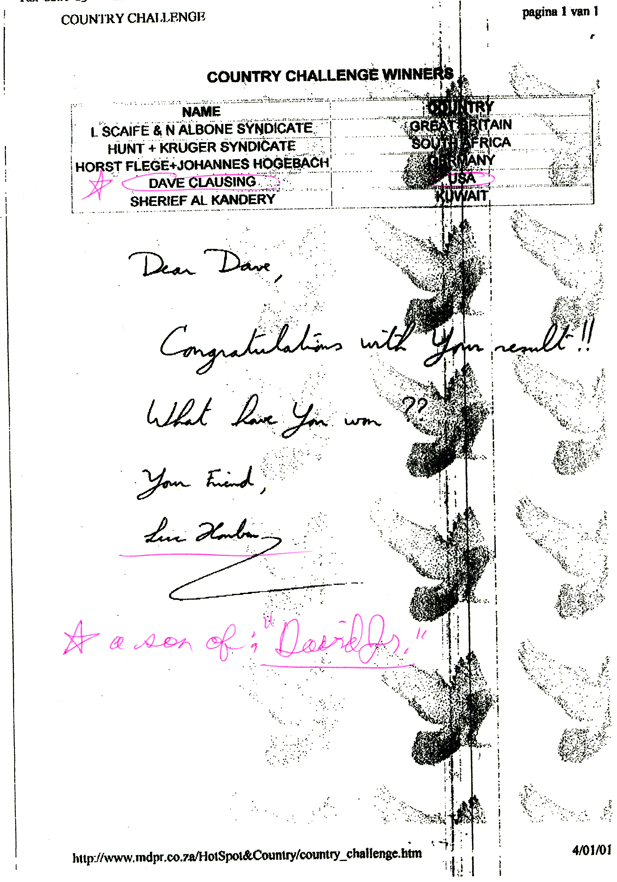 COUNTRY CHALLENGE
pagina 1 van 1
COUNTRY CHALLENGE WINNERS
NAME COUNTRY
I. SCAIFE & N ALBONE SYNDICATE GREAT BRITAIN
HUNT + KRUGER SYNDICATE SOUTH AFRICA
HORST FLEGE+JOHANNES HOGEBACH GERMANY
DAVE CLAUSING USA
SHERIEF AL KANDERY KUWAIT
Dear Dave,
Congratulations with Your result!!
What have You won ??
Your Friend,
a son of: "David Jr."
http://www.mdpr.co.za/HotSpot&Country/country_challenge.htm
4/01/01